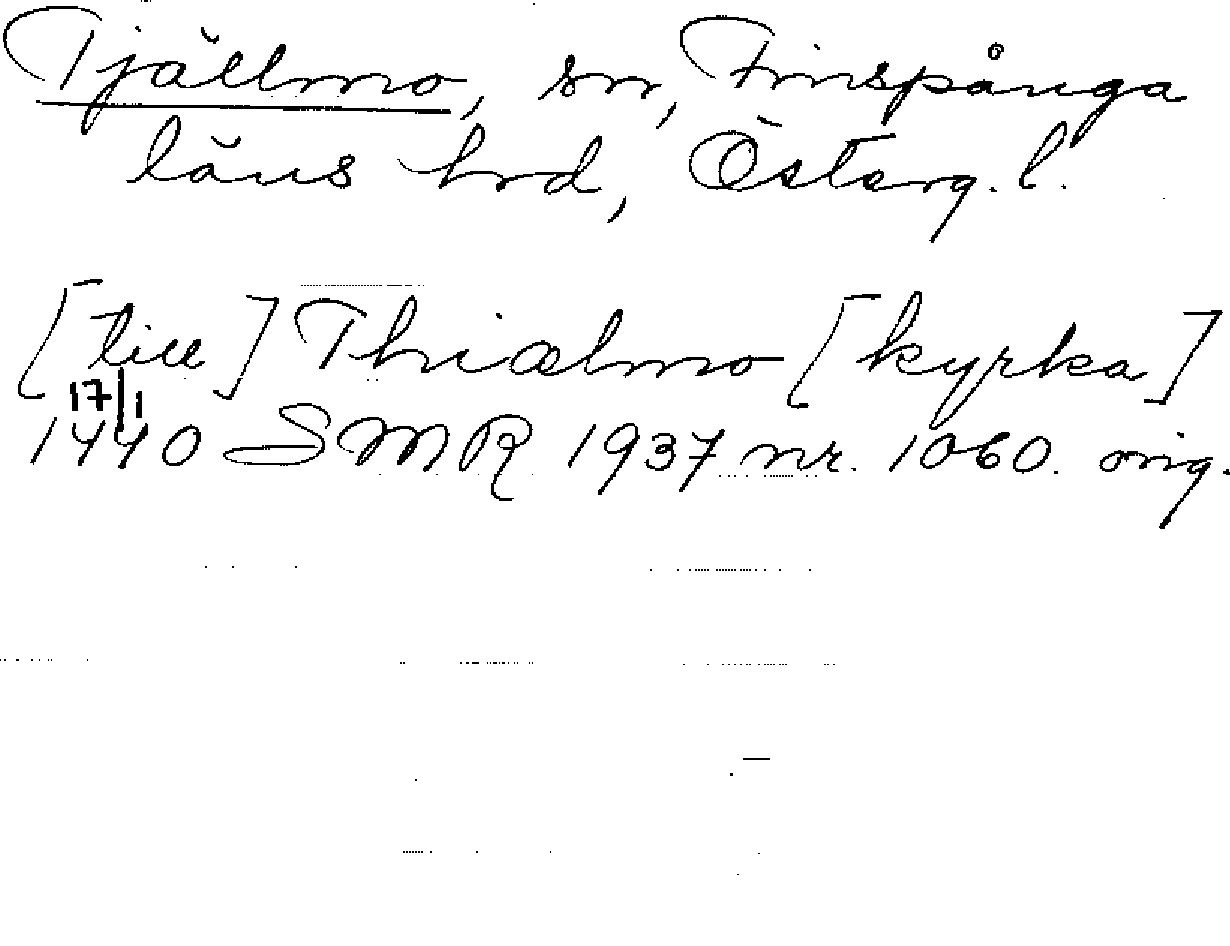 Tjällmo, sn, Finspånga
läns hrd, Österg. l.
[till] Thiælmo [kyrka]
17/1
1440 SMR 1937 nr. 1060. orig.